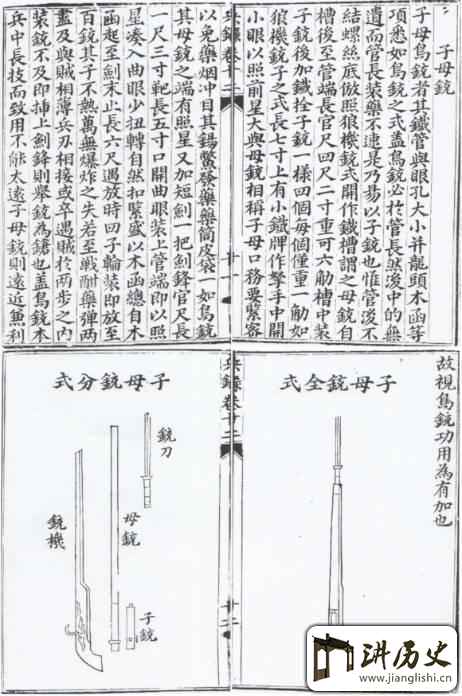 子母銃
子母鳥銃者其鐵管與眼孔大小并龍頭木函等
項悉如鳥銃之式蓋鳥銃必於管長然後中的無
遺而管長裝藥不速是乃易以子銃也惟管後不
結螺絲底倣照狼機銃式開作鐵槽謂之母銃自
槽後至管端長官尺四尺二寸重可六觔槽中裝
子銃後加鐵拴子銃一樣四個每個僅重一觔如
狼機銃子之式長七寸上有小鐵牌作擎手中開
小眼以照前星大與母銃相稱子母口務要緊容
兵錄卷十二
十一
以免藥烟冲目其錫鱉發藥藥筒皮袋一如鳥銃
其母銃之端有照星又加短劍一把劍鋒官尺長
一尺三寸靶長五寸口開曲眼裝上管端即以照
星湊入曲眼少扭轉自然扣緊盛以木函總自木
函起至劍末止長六尺遇放時回子輪裝即放至
百銃其子不熱萬無爆炸之失若至戰酣藥彈兩
盡及與賊相薄兵刃相接或卒遇賊於兩步之內
裝銃不及即插上劍鋒則舉銃為鎗也蓋鳥銃本
兵中長技而致用不能太遠子母銃則遠近兼利
故視鳥銃功用為有加也
子母銃全式
兵錄卷十二
十二
子母銃分式
銃刀
母銃
子銃
銃機
讲历史
www.jianglishi.cn